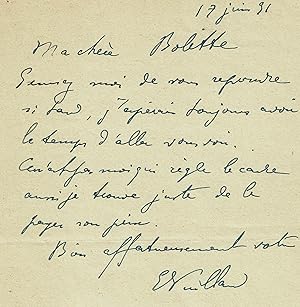 17 juin 31
Ma chère Bolitte
Excusez moi de vous repondre
si tard, j'espérais toujours avoir
le temps d'aller vous voir.
Ce n'est pas moi qui règle le cadre
aussi je trouve juste de le
payer son prix.
Bien affectueusement votre
EVuillard